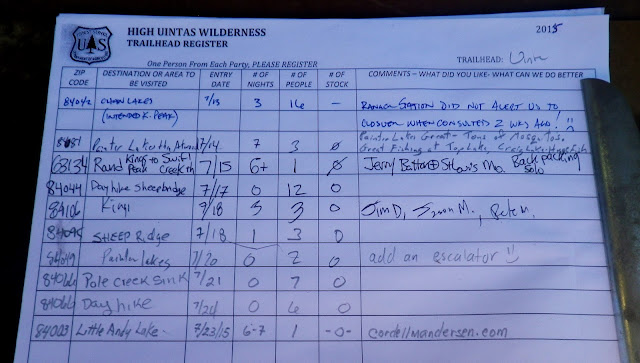 HIGH UINTAS WILDERNESS
TRAILHEAD REGISTER
2015
One Person From Each Party, PLEASE REGISTER
TRAILHEAD: Uinta
ZIP CODE DESTINATION OR AREA TO BE VISITED ENTRY DATE # OF NIGHTS # OF PEOPLE # OF STOCK COMMENTS – WHAT DID YOU LIKE- WHAT CAN WE DO BETTER
84042 CHAIN LAKES (INTENDED K. PEAK) 7/13 3 14 – RANGER STATION DID NOT ALERT US TO CLOSURE WHEN CONSULTED 2 WKS AGO!
Painter Lakes 7/14 7 3 0 Painter Lakes Great - Tons of Mosquitos, Great Fishing at
63134 Kings to Swift Peak Creek TH 7/15 6+ 1 0 Jerry St Louis Mo. Backpacking solo
84044 Day hike Sheepbridge 7/17 0 12 0
84106 Kings 7/18 5 3 0 Jim D, Simon M., Pete M.
84095 SHEEP Ridge 7/18 1 3 0
84049 Painter Lakes 7/20 0 2 0 add an escalator
84066 Pole Creek Sink 7/21 0 7 0
84066 Day hike 7/24 0 6 0
84003 Little Andy Lake 7/23/15 6-7 1 -0- cordellmandersen.com